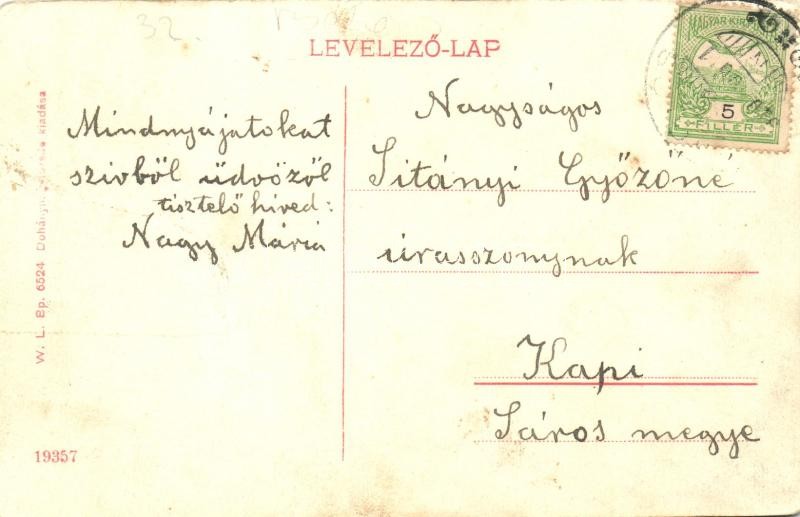 32.
LEVELEZŐ-LAP
MAGYAR KIR.
5
FILLÉR
Mindnyájatokat
szivből üdvözöl
tisztelő híved:
Nagy Mária
Nagyságos
Sitányi Győzőné
úrasszonynak
Kapi
Sáros megye
W. L. Bp. 6524 kiadása
19357